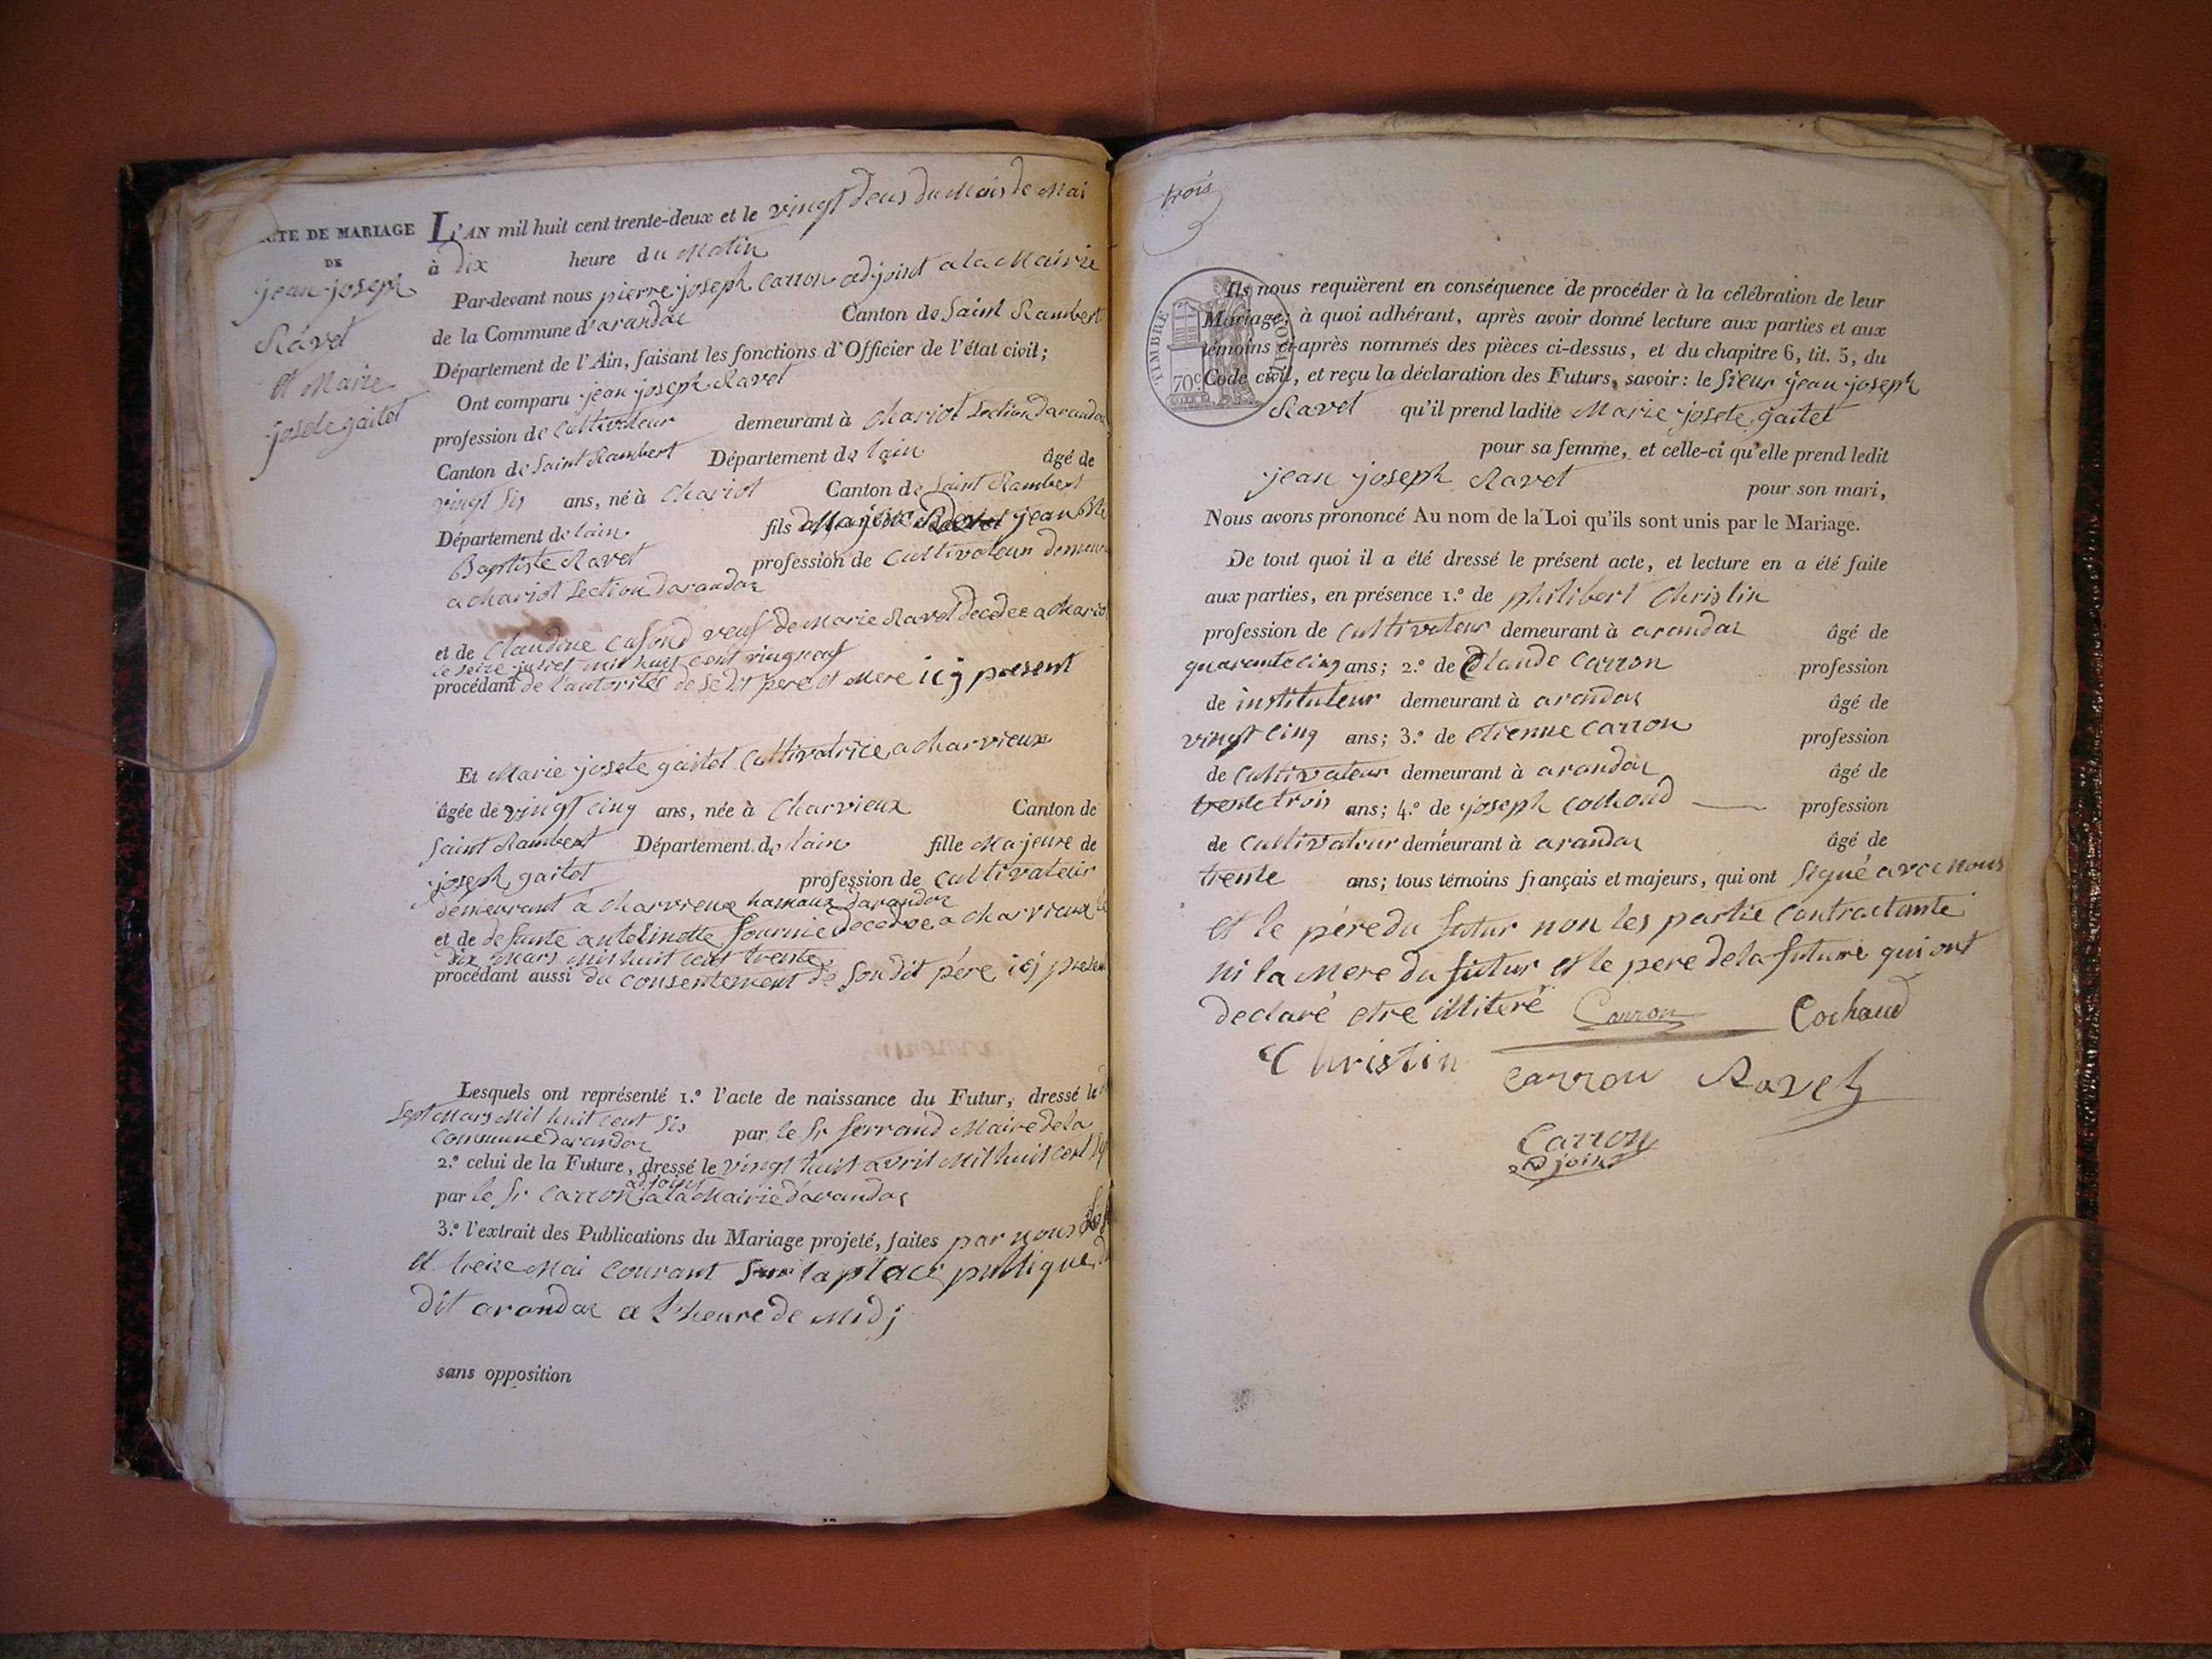 ACTE DE MARIAGE
DE
jean joseph
Ravet
et Marie
josete gaitet
L'AN mil huit cent trente-deux et le vingt deus du Mois de Mai
à dix heure du Matin
Par-devant nous pierre joseph Carron adjoint a la Mairie
de la Commune d'arandas Canton de Saint Rambert
Département de l'Ain, faisant les fonctions d'Officier de l'état civil;
Ont comparu jean joseph Ravet
profession de Cultivateur demeurant à Chariot Section darandas
Canton de Saint Rambert Département de lain âgé de
vingt sis ans, né à Chariot Canton de Saint Rambert
Département de lain fils Majeur de jean Bte
Baptiste Ravet profession de Cultivateur demeur
a chariot Section darandas
et de Claudine veuf de Marie Ravet decedee a Chariot
le seize juliet mil huit cent vingneuf
procédant de l'autorités de sedit pere et Mere icj present
Et Marie josete gaitet Cultivatrice a charvieux
âgée de vingt cinq ans, née à Charvieux Canton de
Saint Rambert Département de lain fille Majeure de
joseph gaitet profession de cultivateur
demeurant à charvieux hamaux darandas
et de defunte antelinette decedee a charvieux le
dix Mars mil huit cent trente
procédant aussi du consentement de son dit père icj present
Lesquels ont représenté 1.º l'acte de naissance du Futur, dressé le
Sept Mars Mil huit cent sis par le Sr ferrand Maire de la
Commune darandas
2.º celui de la Future, dressé le vingt huit avril Mil huit cent
par le Sr Carron adjoint a la Mairie d'arandas
3.º l'extrait des Publications du Mariage projeté, faites par nous
et treize Mai courant sur la place publique
dit arandas a l'heure de Midj
sans opposition
trois
TIMBRE ROYAL
70c
Ils nous requièrent en conséquence de procéder à la célébration de leur
Mariage; à quoi adhérant, après avoir donné lecture aux parties et aux
témoins ci-après nommés des pièces ci-dessus, et du chapitre 6, tit. 5, du
Code civil, et reçu la déclaration des Futurs, savoir: le sieur jean joseph
Ravet qu'il prend ladite Marie josete gaitet
pour sa femme, et celle-ci qu'elle prend ledit
jean joseph Ravet pour son mari,
Nous avons prononcé Au nom de la Loi qu'ils sont unis par le Mariage.
De tout quoi il a été dressé le présent acte, et lecture en a été faite
aux parties, en présence 1.º de philibert Christin
profession de Cultivateur demeurant à arandas âgé de
quarante cinq ans; 2.º de Claude Carron profession
de instituteur demeurant à arandas âgé de
vingt cinq ans; 3.º de etienne Carron profession
de Cultivateur demeurant à arandas âgé de
trente trois ans; 4.º de joseph cochoud profession
de Cultivateur demeurant à arandas âgé de
trente ans; tous témoins français et majeurs, qui ont signé avec nous
et le père du futur non les partie contractante
ni la Mere du futur et le pere de la future qui ont
declaré etre illiteré Carron Cochoud
Christin
Carron Ravet
Carron
adjoint